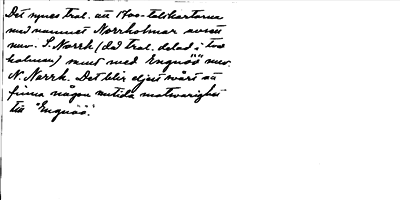 Det synes trol. att 1700-talskartorna
med namnet Norrholmar avsett
nuv. S. Norrh. (då trol. delad i två
holmar) samt med Engnöö nuv.
N. Norrh. Det blir eljest svårt att
finna någon nutida motsvarighet
till "Engnöö".